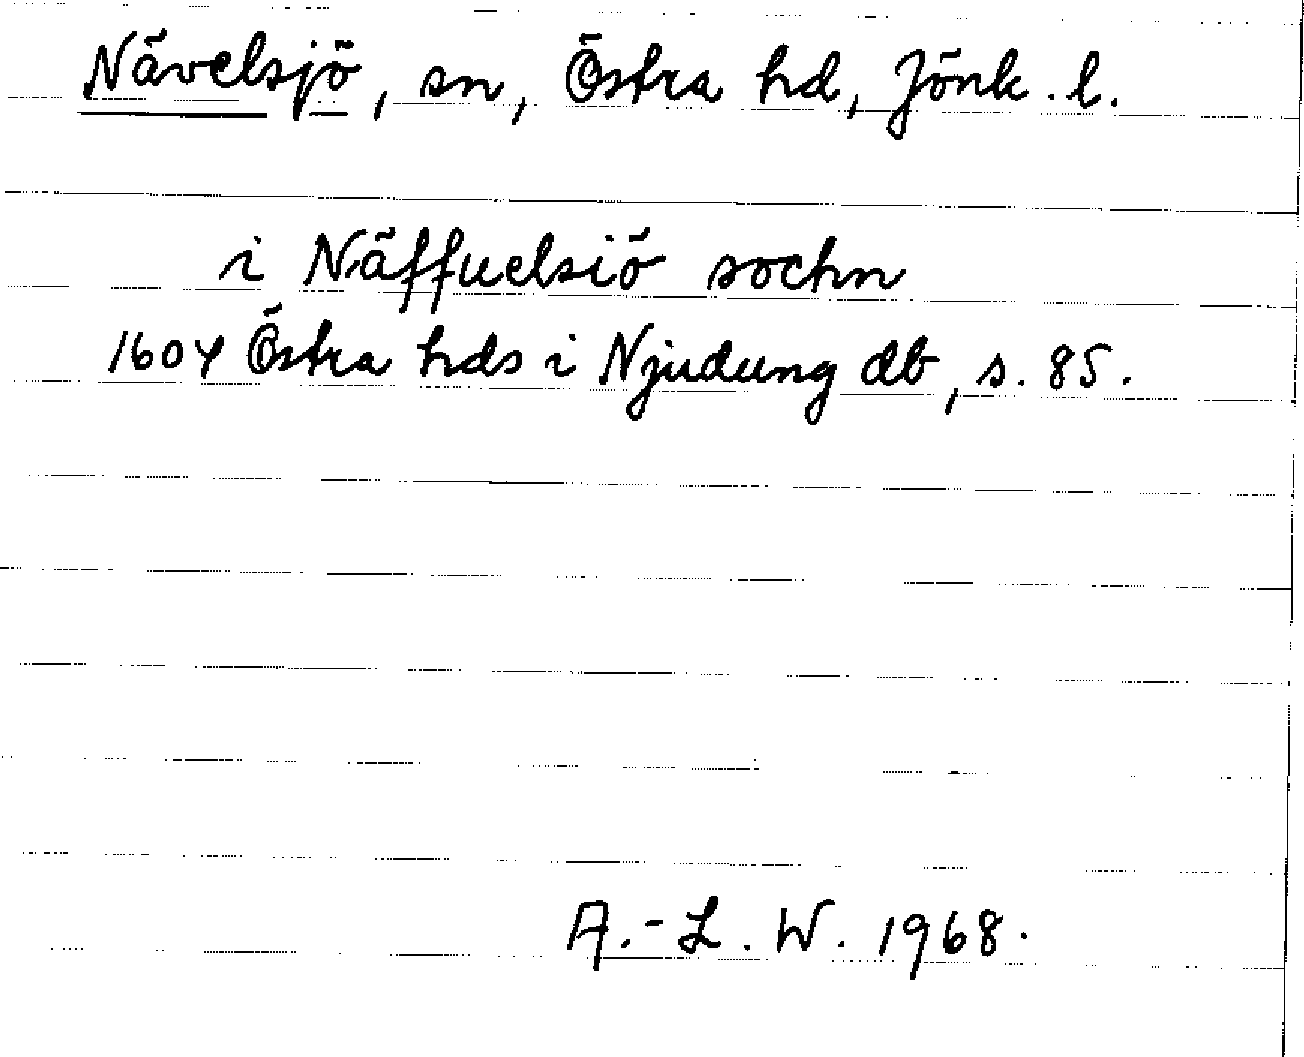 Nävelsjö, sn, Östra hd, Jönk. l.
i Näffuelsiö sochn
1604 Östra hds i Njudung db, s. 85.
A.-L. W. 1968.